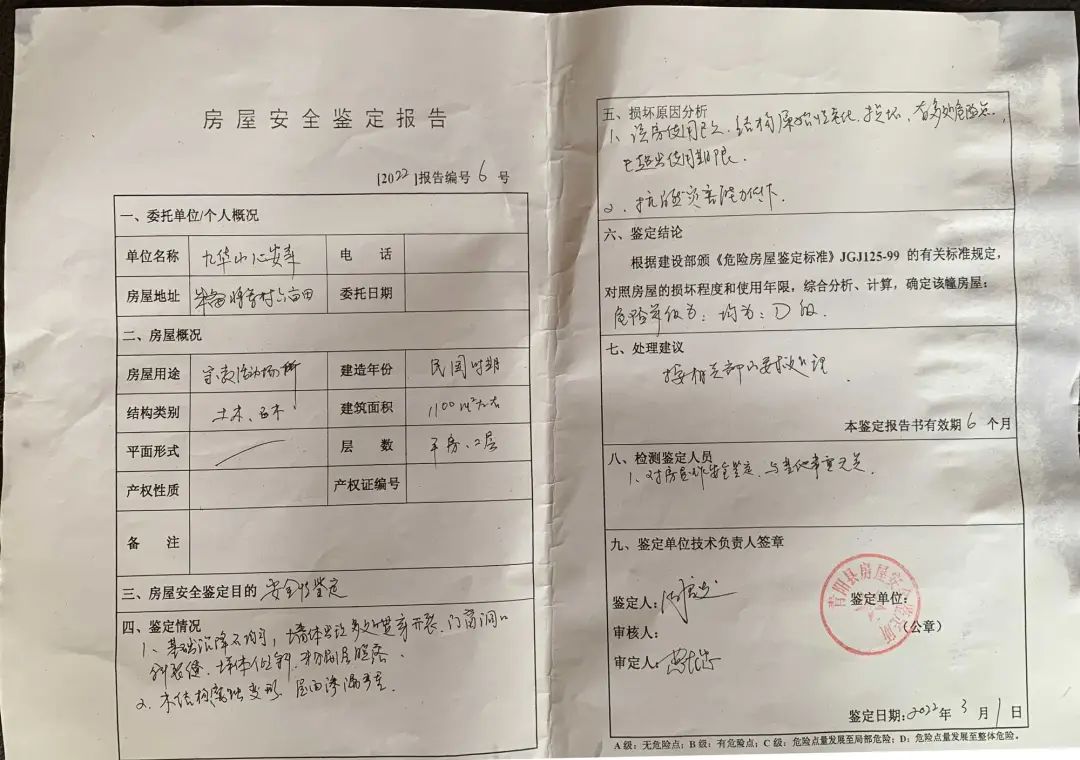 房屋安全鉴定报告
[2022]报告编号 6 号
一、委托单位/个人概况
单位名称 九华山心安寺 电 话
房屋地址 委托日期
二、房屋概况
房屋用途 宗教活动场所 建造年份 民国时期
结构类别 土木、石木 建筑面积 1100m²左右
平面形式 层 数 平房、2层
产权性质 产权证编号
备 注
三、房屋安全鉴定目的 安全性鉴定
四、鉴定情况
1、基础沉降不均匀,墙体出现多处贯穿开裂、门窗洞口
斜裂缝、墙体倾斜、粉刷层脱落、
2、木结构腐蚀变形、屋面渗漏严重.
五、损坏原因分析
1、该房使用已久、结构原始性老化、损坏、有多处危险点,
已超出使用期限.
2、抗自然灾害能力低下.
六、鉴定结论
根据建设部颁《危险房屋鉴定标准》JGJ125-99 的有关标准规定,
对照房屋的损坏程度和使用年限,综合分析、计算,确定该幢房屋:
危险等级为:均为:D级.
七、处理建议
按相关部门要求处理.
本鉴定报告书有效期 6 个月
八、检测鉴定人员
1、对房屋作安全鉴定、与其他事宜无关.
九、鉴定单位技术负责人签章
鉴定人:
审核人:
审定人:
青阳县房屋安全鉴定所
鉴定单位:
(公章)
鉴定日期:2022年 3 月 1 日
A 级:无危险点;B 级:有危险点;C 级:危险点量发展至局部危险;D:危险点量发展至整体危险。